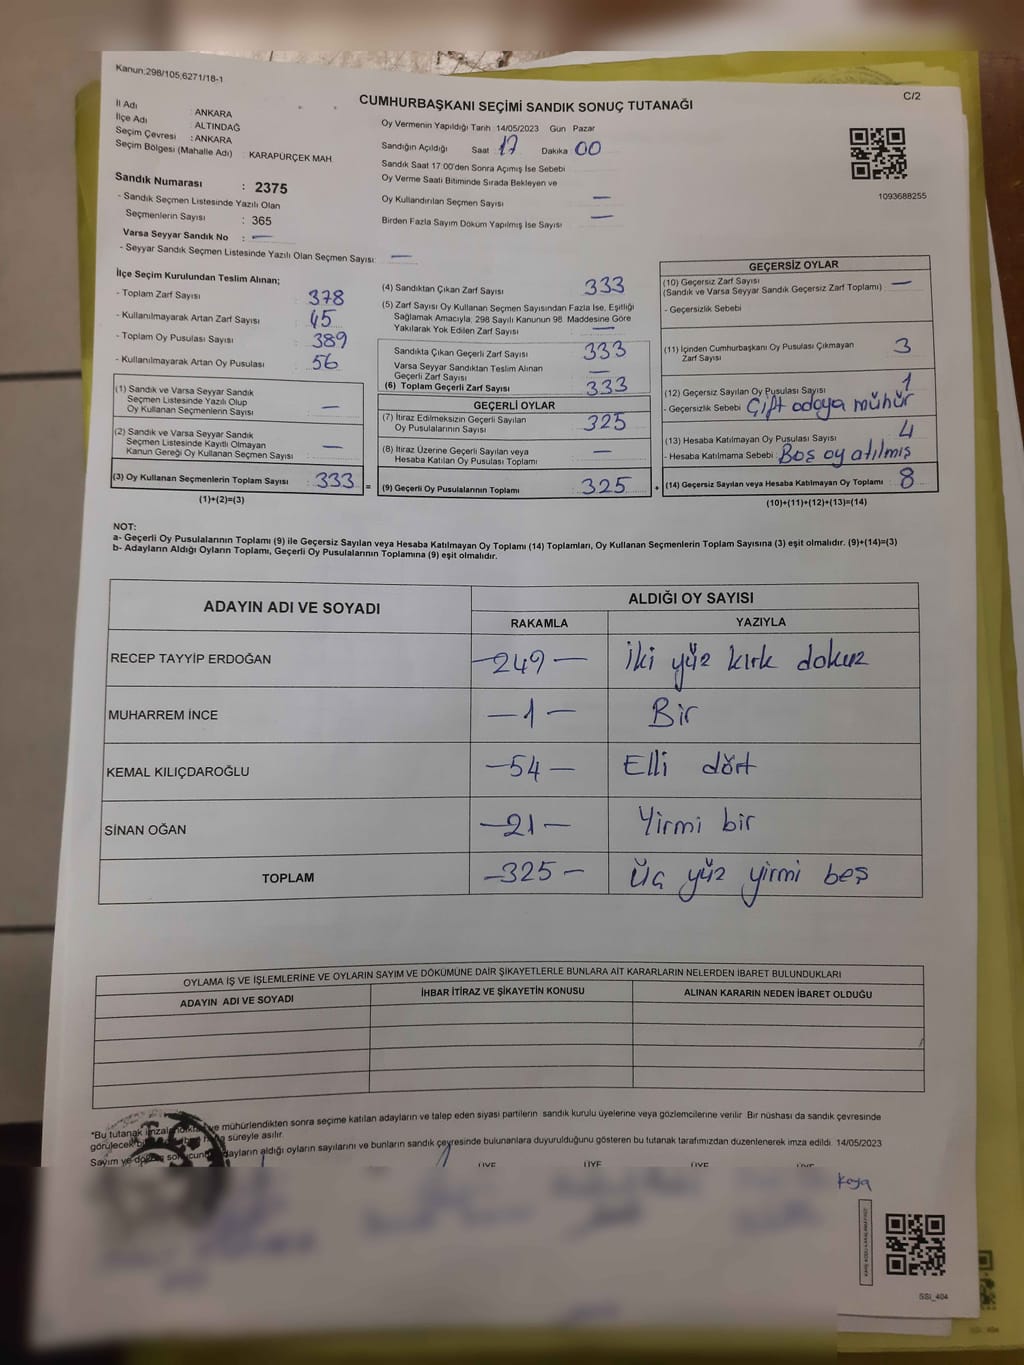 Kanun:298/105,6271/18-1
C/2
CUMHURBAŞKANI SEÇİMİ SANDIK SONUÇ TUTANAĞI
İl Adı : ANKARA
İlçe Adı : ALTINDAĞ
Seçim Çevresi : ANKARA
Seçim Bölgesi (Mahalle Adı) : KARAPÜRÇEK MAH.
Oy Vermenin Yapıldığı Tarih 14/05/2023 Gün Pazar
Sandığın Açıldığı Saat 17 Dakika 00
Sandık Saat 17:00'den Sonra Açımış İse Sebebi
Oy Verme Saati Bitiminde Sırada Bekleyen ve
Oy Kullandırılan Seçmen Sayısı —
Birden Fazla Sayım Döküm Yapılmış İse Sayısı —
1093688255
Sandık Numarası : 2375
- Sandık Seçmen Listesinde Yazılı Olan
Seçmenlerin Sayısı : 365
Varsa Seyyar Sandık No : —
- Seyyar Sandık Seçmen Listesinde Yazılı Olan Seçmen Sayısı: —
İlçe Seçim Kurulundan Teslim Alınan;
- Toplam Zarf Sayısı 378
- Kullanılmayarak Artan Zarf Sayısı 45
- Toplam Oy Pusulası Sayısı 389
- Kullanılmayarak Artan Oy Pusulası 56
(1) Sandık ve Varsa Seyyar Sandık
Seçmen Listesinde Yazılı Olup
Oy Kullanan Seçmenlerin Sayısı —
(2) Sandık ve Varsa Seyyar Sandık
Seçmen Listesinde Kayıtlı Olmayan
Kanun Gereği Oy Kullanan Seçmen Sayısı —
(3) Oy Kullanan Seçmenlerin Toplam Sayısı 333 =
(1)+(2)=(3)
(4) Sandıktan Çıkan Zarf Sayısı 333
(5) Zarf Sayısı Oy Kullanan Seçmen Sayısından Fazla İse, Eşitliği
Sağlamak Amacıyla, 298 Sayılı Kanunun 98. Maddesine Göre
Yakılarak Yok Edilen Zarf Sayısı —
Sandıkta Çıkan Geçerli Zarf Sayısı 333
Varsa Seyyar Sandıktan Teslim Alınan
Geçerli Zarf Sayısı —
(6) Toplam Geçerli Zarf Sayısı 333
GEÇERLİ OYLAR
(7) İtiraz Edilmeksizin Geçerli Sayılan
Oy Pusulalarının Sayısı 325
(8) İtiraz Üzerine Geçerli Sayılan veya
Hesaba Katılan Oy Pusulası Toplamı —
(9) Geçerli Oy Pusulalarının Toplamı 325 +
GEÇERSİZ OYLAR
(10) Geçersiz Zarf Sayısı
(Sandık ve Varsa Seyyar Sandık Geçersiz Zarf Toplamı) —
- Geçersizlik Sebebi
(11) İçinden Cumhurbaşkanı Oy Pusulası Çıkmayan
Zarf Sayısı 3
(12) Geçersiz Sayılan Oy Pusulası Sayısı 1
- Geçersizlik Sebebi Çift adaya mühür
(13) Hesaba Katılmayan Oy Pusulası Sayısı 4
- Hesaba Katılmama Sebebi : Boş oy atılmış
(14) Geçersiz Sayılan veya Hesaba Katılmayan Oy Toplamı 8
(10)+(11)+(12)+(13)=(14)
NOT:
a- Geçerli Oy Pusulalarının Toplamı (9) ile Geçersiz Sayılan veya Hesaba Katılmayan Oy Toplamı (14) Toplamları, Oy Kullanan Seçmenlerin Toplam Sayısına (3) eşit olmalıdır. (9)+(14)=(3)
b- Adayların Aldığı Oyların Toplamı, Geçerli Oy Pusulalarının Toplamına (9) eşit olmalıdır.
ADAYIN ADI VE SOYADI
ALDIĞI OY SAYISI
RAKAMLA YAZIYLA
RECEP TAYYİP ERDOĞAN —249— İki yüz kırk dokuz
MUHARREM İNCE —1— Bir
KEMAL KILIÇDAROĞLU —54— Elli dört
SİNAN OĞAN —21— Yirmi bir
TOPLAM —325— Üç yüz yirmi beş
OYLAMA İŞ VE İŞLEMLERİNE VE OYLARIN SAYIM VE DÖKÜMÜNE DAİR ŞİKAYETLERLE BUNLARA AİT KARARLARIN NELERDEN İBARET BULUNDUKLARI
ADAYIN ADI VE SOYADI İHBAR İTİRAZ VE ŞİKAYETİN KONUSU ALINAN KARARIN NEDEN İBARET OLDUĞU
*Bu tutanak imzalandıktan ve mühürlendikten sonra seçime katılan adayların ve talep eden siyasi partilerin sandık kurulu üyelerine veya gözlemcilerine verilir. Bir nüshası da sandık çevresinde
görülecek bir süreyle asılır.
Sayım ve döküm sonucunu, adayların aldığı oyların sayılarını ve bunların sandık çevresinde bulunanlara duyurulduğunu gösteren bu tutanak tarafımızdan düzenlenerek imza edildi. 14/05/2023
ÜYE ÜYE ÜYE ÜYE
Kaya
SSİ_404